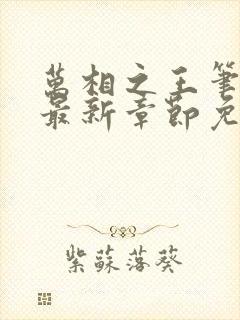 萬相之王筆
最新章節免
紫蘇落葵